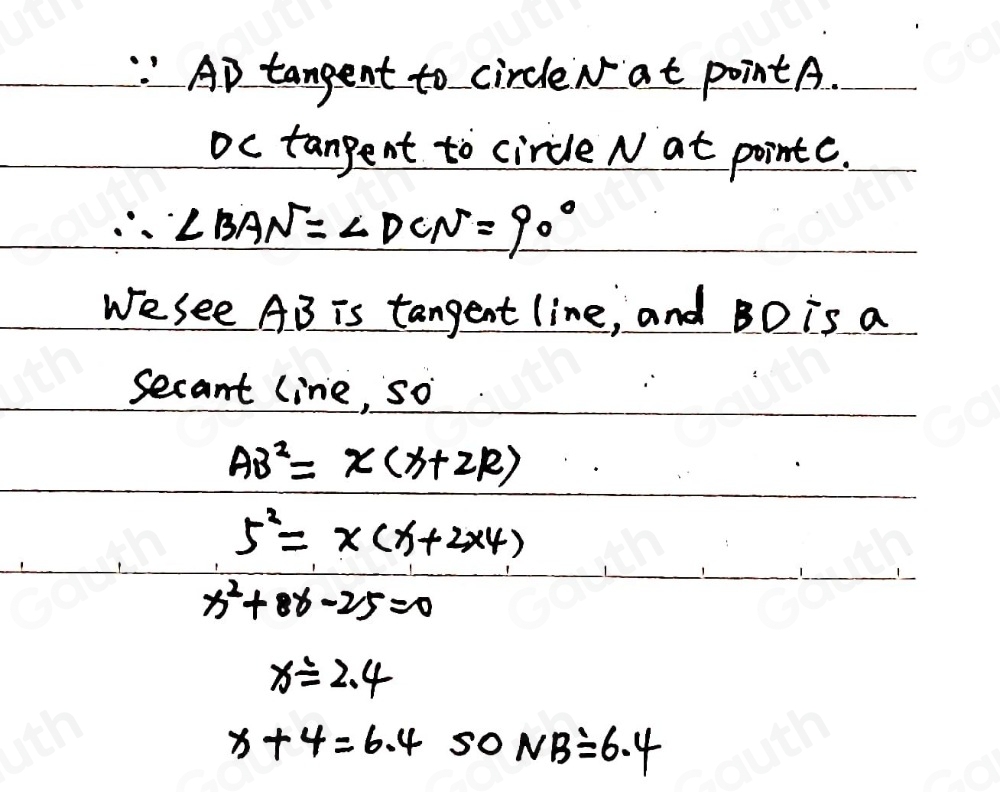 ∵ AD tangent to circle N at point A.
DC tangent to circle N at point C.
∴ ∠BAN = ∠DCN = 90°
We see AB is tangent line, and BD is a
secant line, so
AB² = x(x+2R)
5² = x(x+2×4)
x²+8x-25=0
x≐2.4
x+4=6.4 so NB≐6.4